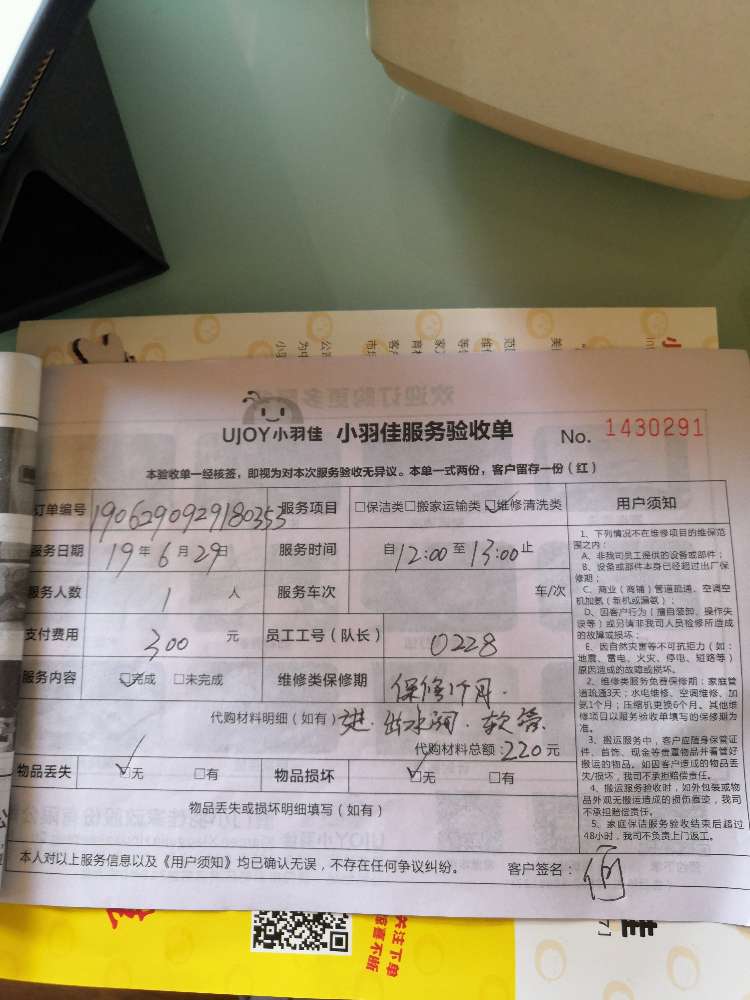 UJOY小羽佳 小羽佳服务验收单 No. 1430291
本验收单一经核签，即视为对本次服务验收无异议。本单一式两份，客户留存一份（红）
订单编号 1906290929180355 服务项目 □保洁类□搬家运输类☑维修清洗类 用户须知
服务日期 19年6月29日 服务时间 自12:00至13:00止
服务人数 1 人 服务车次 车/次
支付费用 300 元 员工工号（队长） 0228
服务内容 ☑完成 □未完成 维修类保修期 保修1个月.
代购材料明细（如有）进.出水阀.软管
代购材料总额：220元
物品丢失 ☑无 □有 物品损坏 ☑无 □有
物品丢失或损坏明细填写（如有）
本人对以上服务信息以及《用户须知》均已确认无误，不存在任何争议纠纷。 客户签名：
1、下列情况不在维修项目的维保范
围之内：
A、非我司员工提供的设备或部件；
B、设备或部件本身已经超过出厂保
修期；
C、商业（商铺）管道疏通、空调空
机加氨（新机或漏氨）；
D、因客户行为（擅自装卸、操作失
误等）或另请非我司人员检修所造成
的故障或损坏；
E、因自然灾害等不可抗拒力（如：
地震、雷电、火灾、停电、短路等）
原因造成的故障或损坏。
2、维修类服务免费保修期：家庭管
道疏通3天；水电维修、空调维修、加
氨1个月；压缩机更换6个月。其他维
修项目以服务验收单填写的保修期为
准。
3、搬运服务中，客户应随身保管证
件、首饰、现金等贵重物品并看管好
搬运的物品。如因客户造成的物品丢
失/损坏，我司不承担赔偿责任。
4、搬运服务验收时，如外包装或物
品外观无搬运造成的损伤痕迹，我司
不承担赔偿责任。
5、家庭保洁服务验收结束后超过
48小时，我司不负责上门返工。
关注下单
惊喜不断
佳